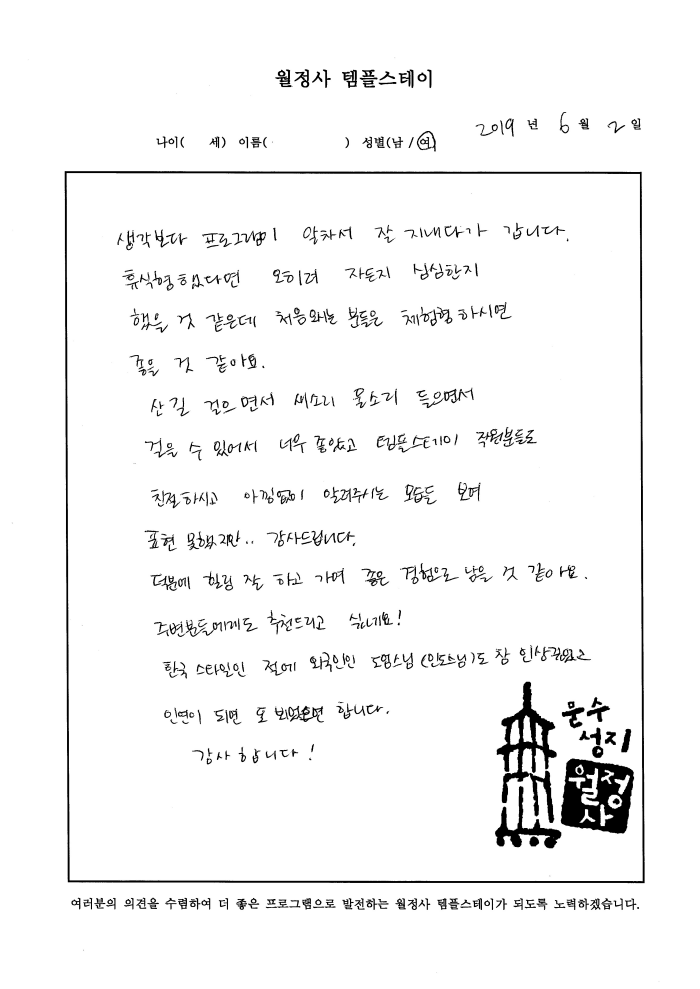 월정사 템플스테이
2019 년 6 월 2 일
나이( 세) 이름( ) 성별(남 / 여)
생각보다 프로그램이 알차서 잘 지내다가 갑니다.
휴식형 했다면 오히려 자든지 심심한지
했을 것 같은데 처음오시는 분들은 체험형 하시면
좋을 것 같아요.
산길 걸으면서 새소리 물소리 들으면서
걸을 수 있어서 너무 좋았고 템플스테이 직원분들도
친절하시고 아낌없이 알려주시는 모습들 보며
표현 못했지만.. 감사드립니다.
덕분에 힐링 잘 하고 가며 좋은 경험으로 남을 것 같아요.
주변분들에게도 추천드리고 싶네요!
한국 스타일인 절에 외국인인 도엄스님 (인도스님)도 참 인상깊었고
인연이 되면 또 뵈었으면 합니다.
감사합니다!
문수
성지
월정
사
여러분의 의견을 수렴하여 더 좋은 프로그램으로 발전하는 월정사 템플스테이가 되도록 노력하겠습니다.